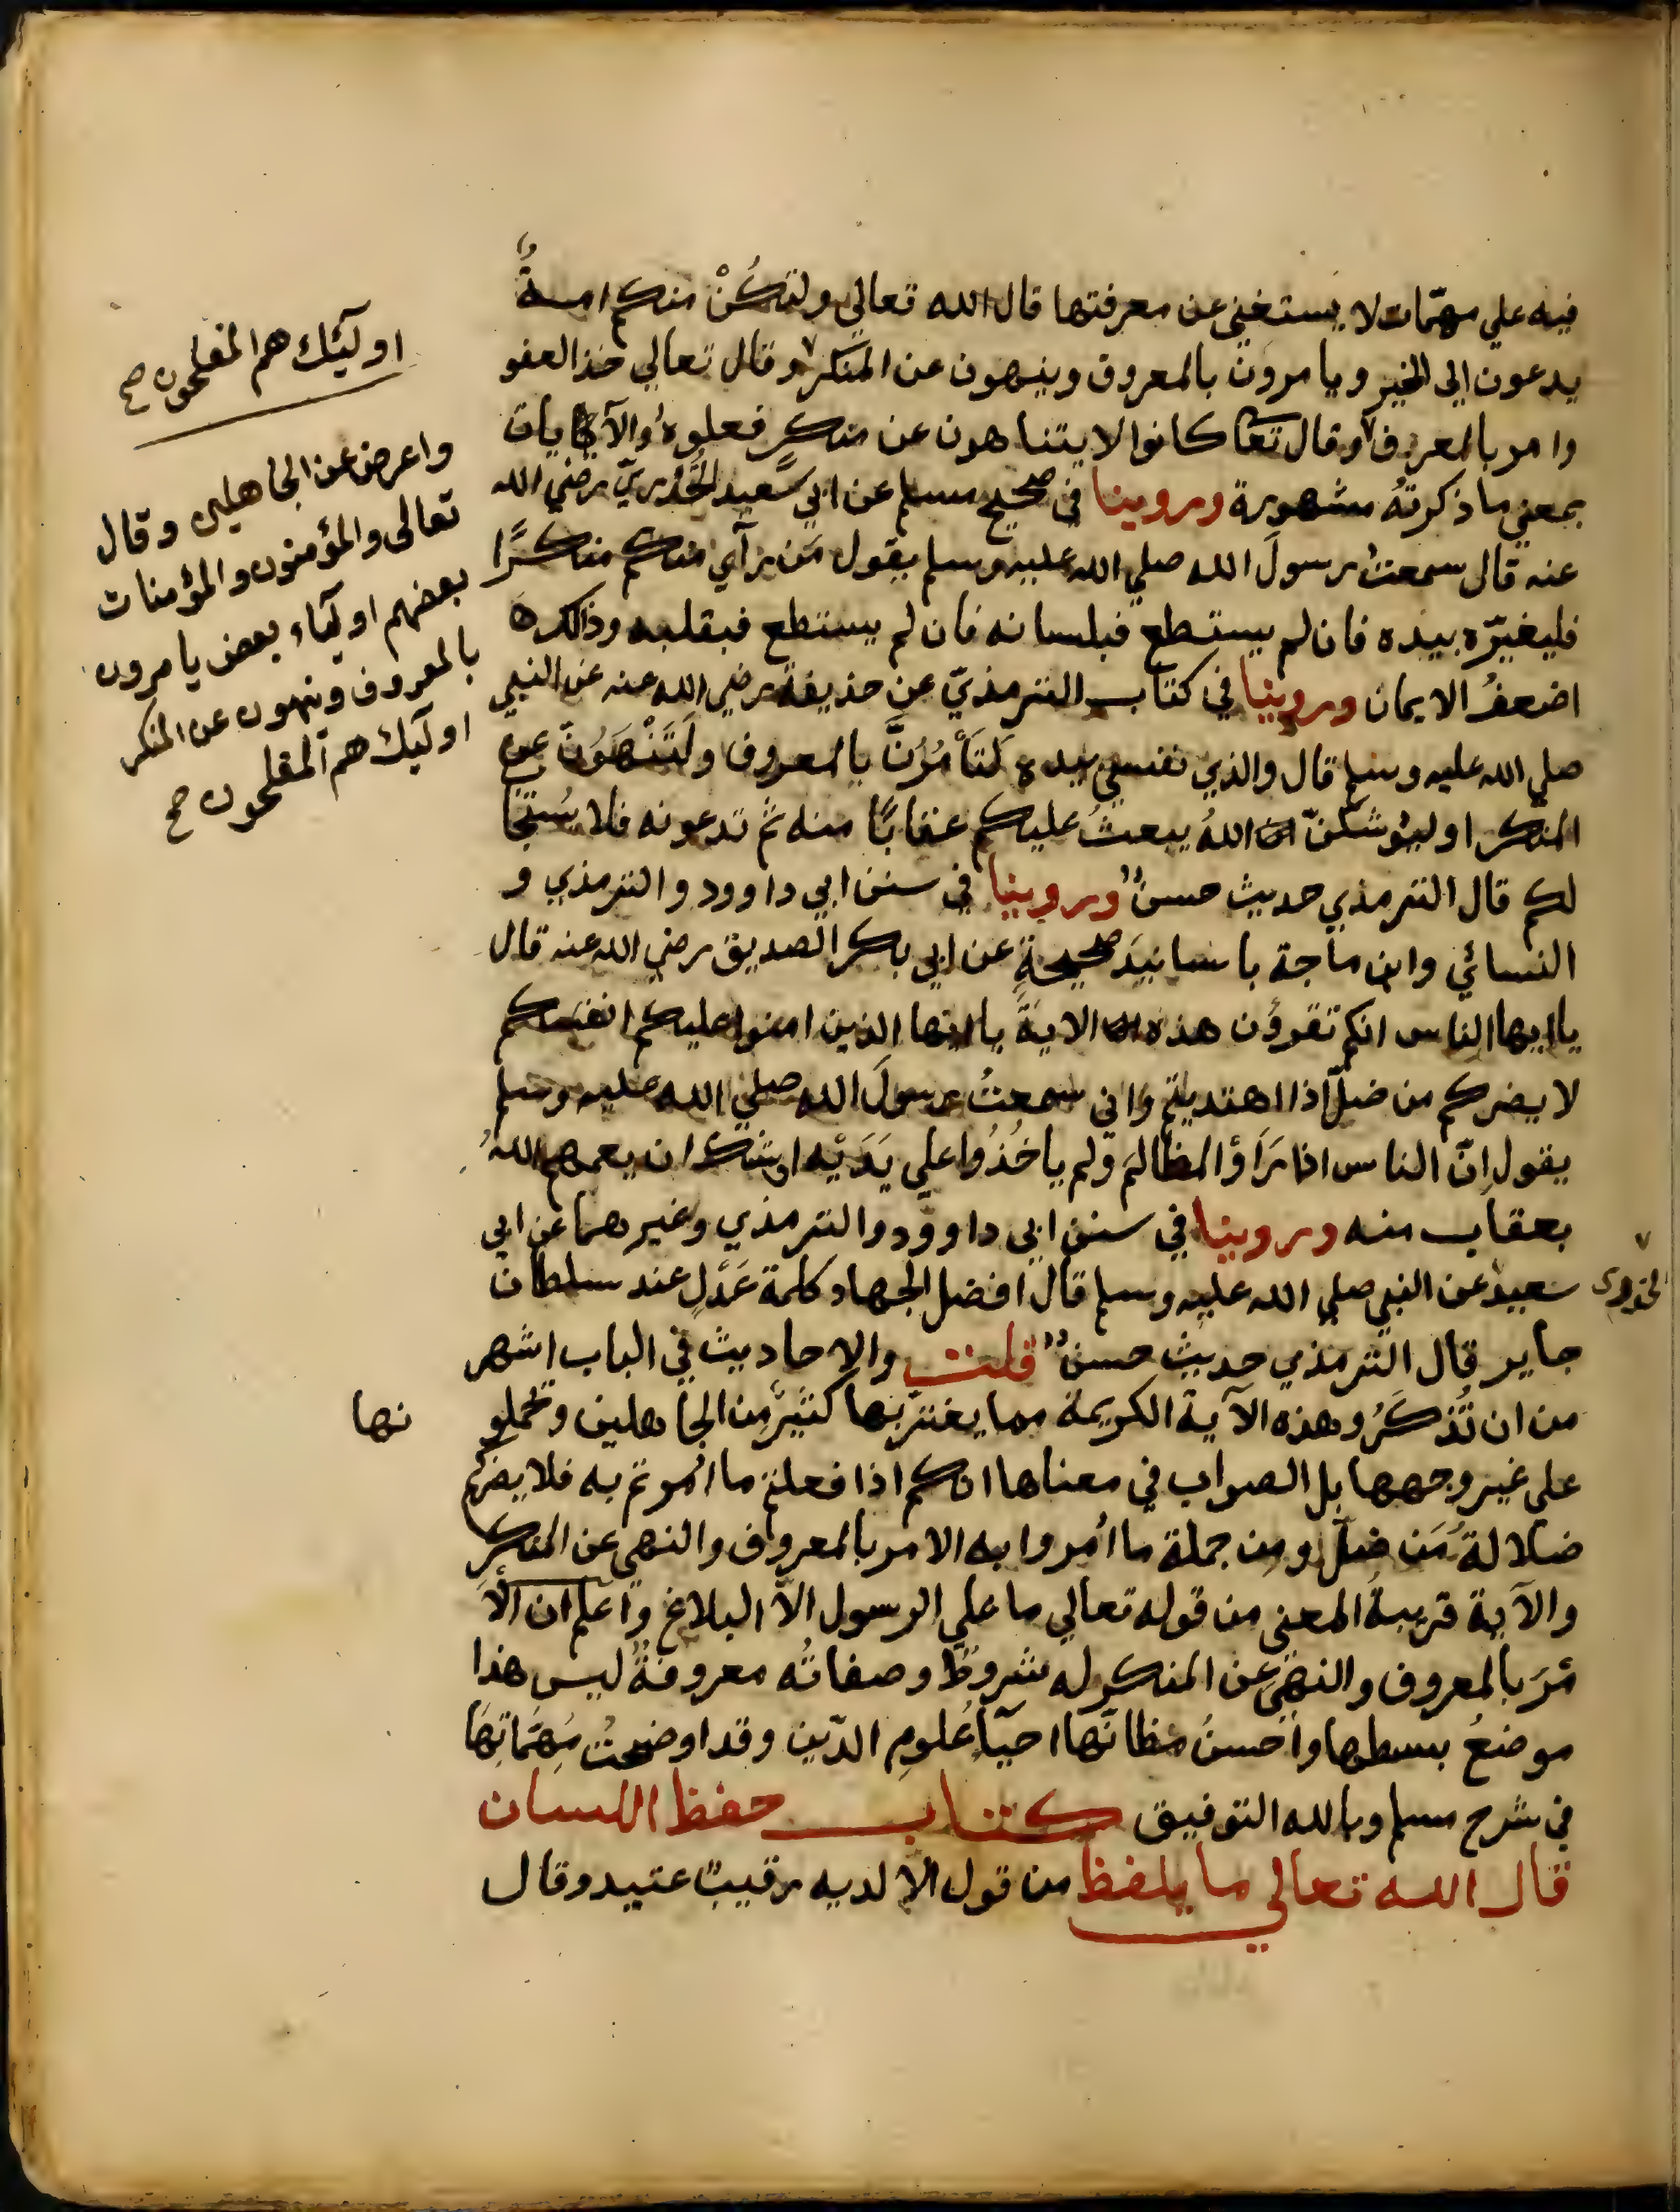 فيه علي مهمّات لا يستغني عن معرفتها قال الله تعالي ولتكُنْ منكم امةٌ
يدعون الي الخير ويامرون بالمعروف وينهون عن المنكر وقال تعالي خذ العفو
وامر بالمعروف وقال تعا كانوا لا يتناهون عن منكرٍ فعلوهُ والآيات
بمعني ما ذكرتهُ مشهورة وروينا في صحيح مسلم عن ابي سَعيد الخُدْريّ رضي الله
عنه قال سمعتُ رسولَ الله صلي الله عليه وسلم يقول مَن رآي منكم منكرًا
فليغيّره بيده فان لم يستطع فبلسانه فان لم يستطع فبقلبه وذلك
اضعفُ الايمان وروينا في كتاب الترمذيّ عن حذيفة رضي الله عنه عن النبي
صلي الله عليه وسلم قال والذي نفسي بيده لَتَأْمُرُنَّ بالمعروف ولَتَنْهَوُنّ عن
المنكر او ليُوشكنّ اللهُ يبعثُ عليكم عقابًا منه ثم تدعونه فلا يُستجا
لكم قال الترمذي حديث حسنٌ وروينا في سنن ابي داوود والترمذي و
النسائي وابن ماجة باسانيدَ صحيحةٍ عن ابي بكر الصديق رضي الله عنه قال
يا ايها الناس انكم تقرؤن هذه الايةَ يا ايها الذين امنوا عليكم انفسكم
لا يضركم من ضلّ اذا اهتديتم واني سمعتُ رسولَ الله صلي الله عليه وسلم
يقول اِنّ الناس اذا رَاَوُ المظالمَ ولم ياخُذُوا علي يَدَيْه اوشك ان يعمهم اللهُ
بعقاب منه وروينا في سنن ابي داوود والترمذي وغيرهما عن ابي
سعيد عن النبي صلي الله عليه وسلم قال افضل الجهاد كلمة عَدْلٍ عند سلطان
جاير قال الترمذي حديث حسنٌ قلت والاحاديث في الباب اشهر
من ان تُذكَرُ وهذه الآية الكريمة مما يغترّ بها كثيرٌ مِن الجاهلين ويحملو نها
علي غير وجهها بل الصواب في معناها انكم اذا فعلتم ما اُمرتم به فلا يضركم
ضلالةُ مَن ضلّ ومن جملة ما اُمروا به الامر بالمعروف والنهي عن المنكرِ
والآية قريبةُ المعني من قوله تعالي ما علي الرسول الاّ البلاغ واعلم ان الأَ
مْرَ بالمعروف والنهيَ عن المنكر له شروطٌ وصفاتُه معروفةٌ ليس هذا
موضعُ بسطها واَحسنُ مظانّها احيآ عُلومِ الدّين وقد اوضحتُ مُهِمّاتِهَا
في شرح مسلم وبالله التوفيق كتاب حفظ اللسان
قال الله تعالي ما يلفظ من قول الا لديه رقيبٌ عتيد وقال
اوليٓئك هم المفلحون صح
واعرض عن الجاهلين وقال
تعالى والمؤمنون والمؤمنات
بعضهم اوليآء بعض يامرون
بالمعروف وينهون عن المنكر
اوليٓئك هم المفلحون صح
الخدرى